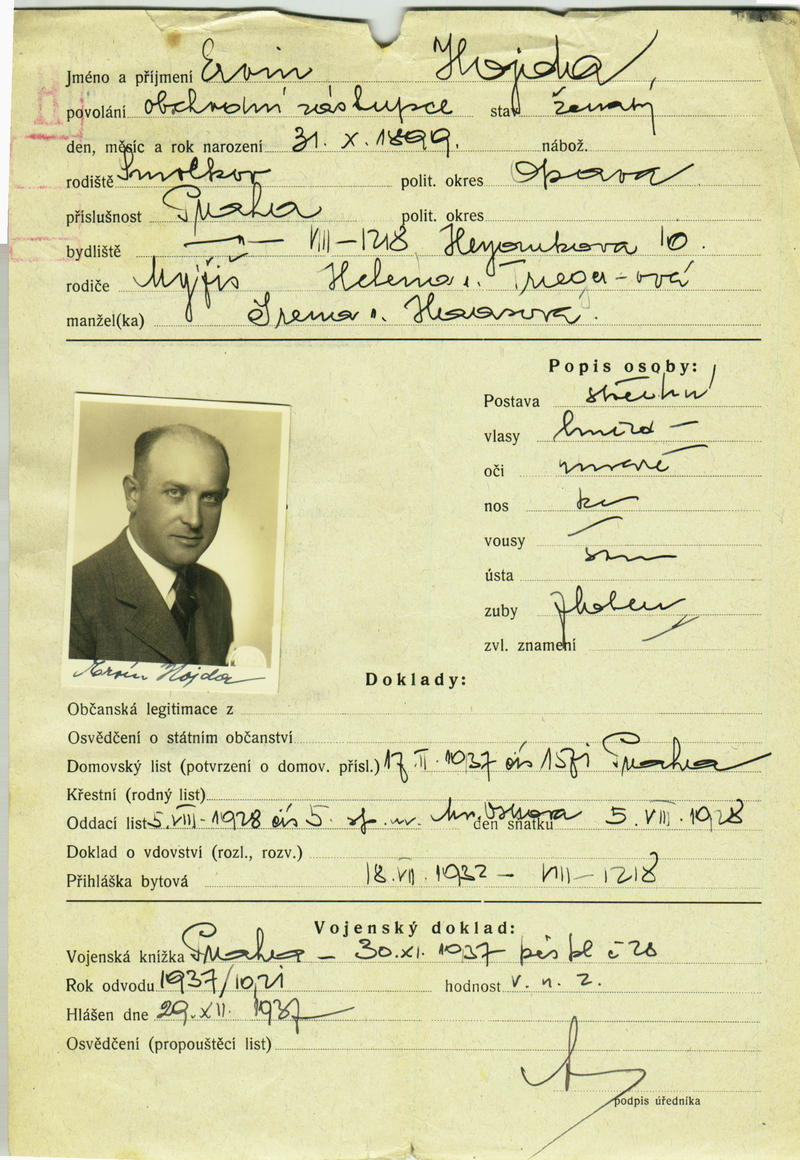 Jméno a příjmení Ervin Hojda,
povolání obchodní zástupce stav ženatý
den, měsíc a rok narození 31. X. 1899. nábož.
rodiště Smolkov polit. okres Opava
příslušnost Praha polit. okres
bydliště — " — VIII – 1218, 10.
rodiče Helena r. Trieger-ová
manžel(ka) Irena r.
Popis osoby:
Postava střední
vlasy hnědé
oči
nos
vousy —
ústa
zuby
zvl. znamení
Ervín Hojda
Doklady:
Občanská legitimace z
Osvědčení o státním občanství
Domovský list (potvrzení o domov. přísl.) 17. II. 1937 čís Praha
Křestní (rodný list)
Oddací list 5. VIII – 1928 čís 5. Ostrava den sňatku 5. VIII. 1928
Doklad o vdovství (rozl., rozv.)
Přihláška bytová 18. VII. 1932 – VIII – 1218
Vojenský doklad:
Vojenská knížka Praha – 30. XI. 1937 pěš pl č 28
Rok odvodu 1937/ hodnost v. n. z.
Hlášen dne 29. XII. 1937
Osvědčení (propouštěcí list)
podpis úředníka